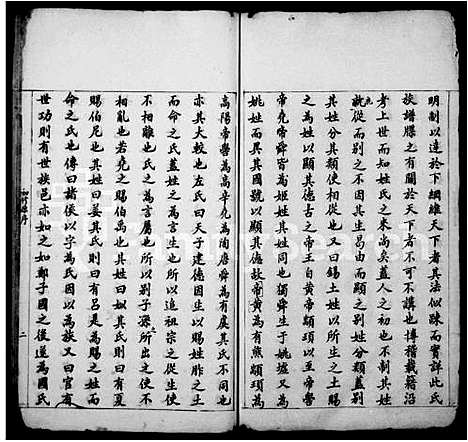 明制以達於下綱維天下者其法似踈而實詳此氏
族譜牒之有關於天下者不可不講也博稽載籍沿
考上世而知姓氏之來尚矣蓋人之初也不制其姓
就從而別之不因其生易由而顯之百姓分其類別
其姓分其類使相從也又曰錫土姓以所生之土賜
之為姓以顯其德古之帝王自黃帝顓頊以至帝嚳
帝堯帝舜皆為姬姓而獨舜生於姚墟又為
姚姓而異其國號以顯其德故帝黃為有熊顓頊為
高陽帝嚳為高辛堯為陶唐舜為有虞其氏不同也
亦其大較也左氏曰天子建德因生以賜姓胙之土
而命之氏蓋姓之為言生也所以追祖宗之從生使
不相離也氏之為言屬也所以別子孫之所出使不
相亂也若堯之賜伯禹也其姓曰姒其氏則曰有夏
賜伯尼也其姓曰姜其氏則曰有呂是為賜之姓而
命之氏也傳曰諸侯以字為氏因以為族又曰官有
世功則有世族邑亦如之如鄭子國之後遂為國氏
序
二
FamilySearch